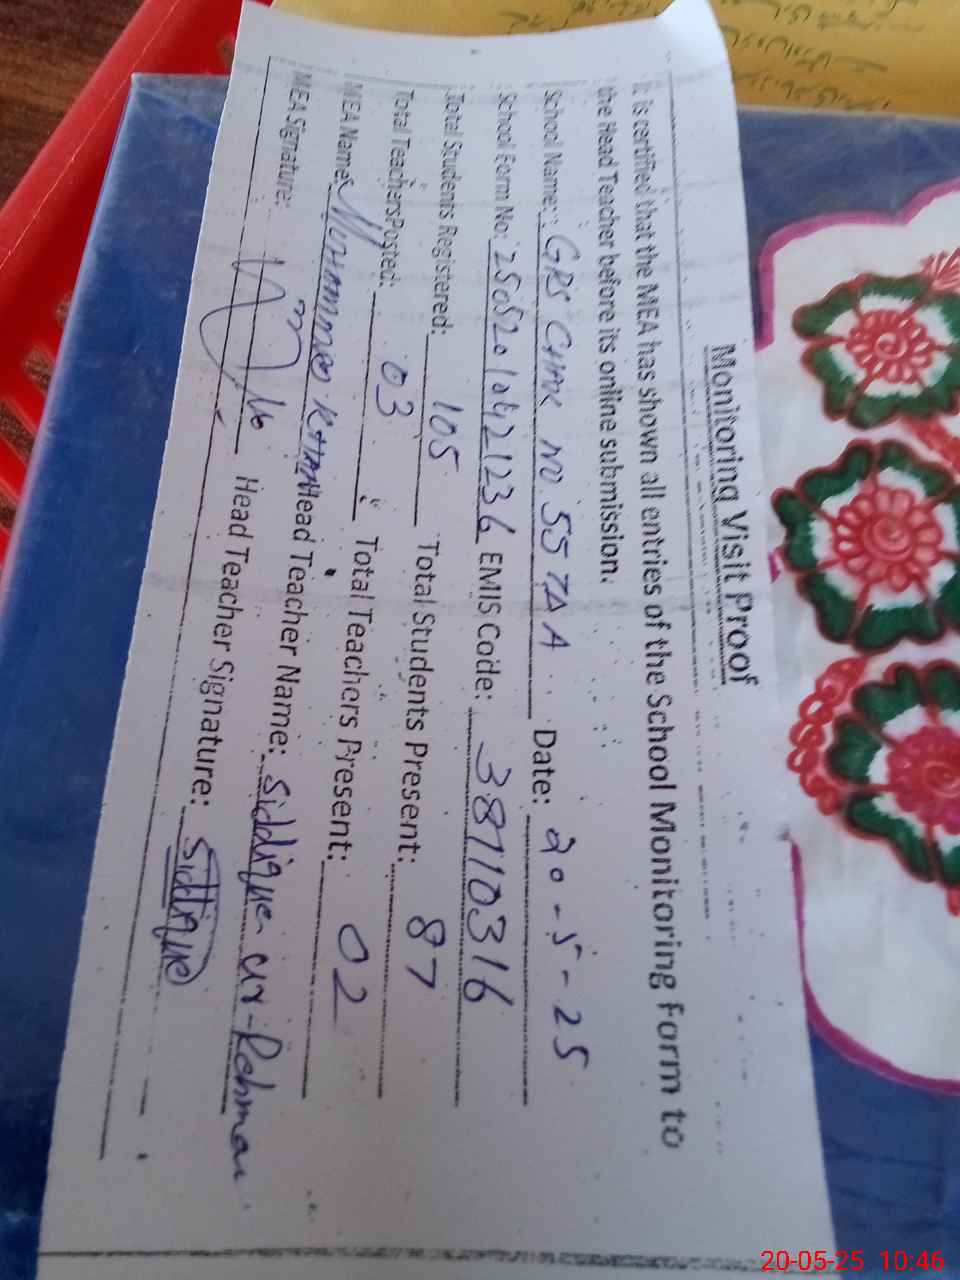 Monitoring Visit Proof
It is certified that the MEA has shown all entries of the School Monitoring Form to
the Head Teacher before its online submission.
School Name: GPS CHAK NO. 55 TDA Date: 20-5-25
School Form No: EMIS Code: 38710316
Total Students Registered: 105 Total Students Present: 87
Total Teachers Posted: 03 Total Teachers Present: 02
MEA Name: MUHAMMAD KHAN Head Teacher Name: Siddique ur-Rehman
MEA Signature: Head Teacher Signature: Siddique
20-05-25 10:46